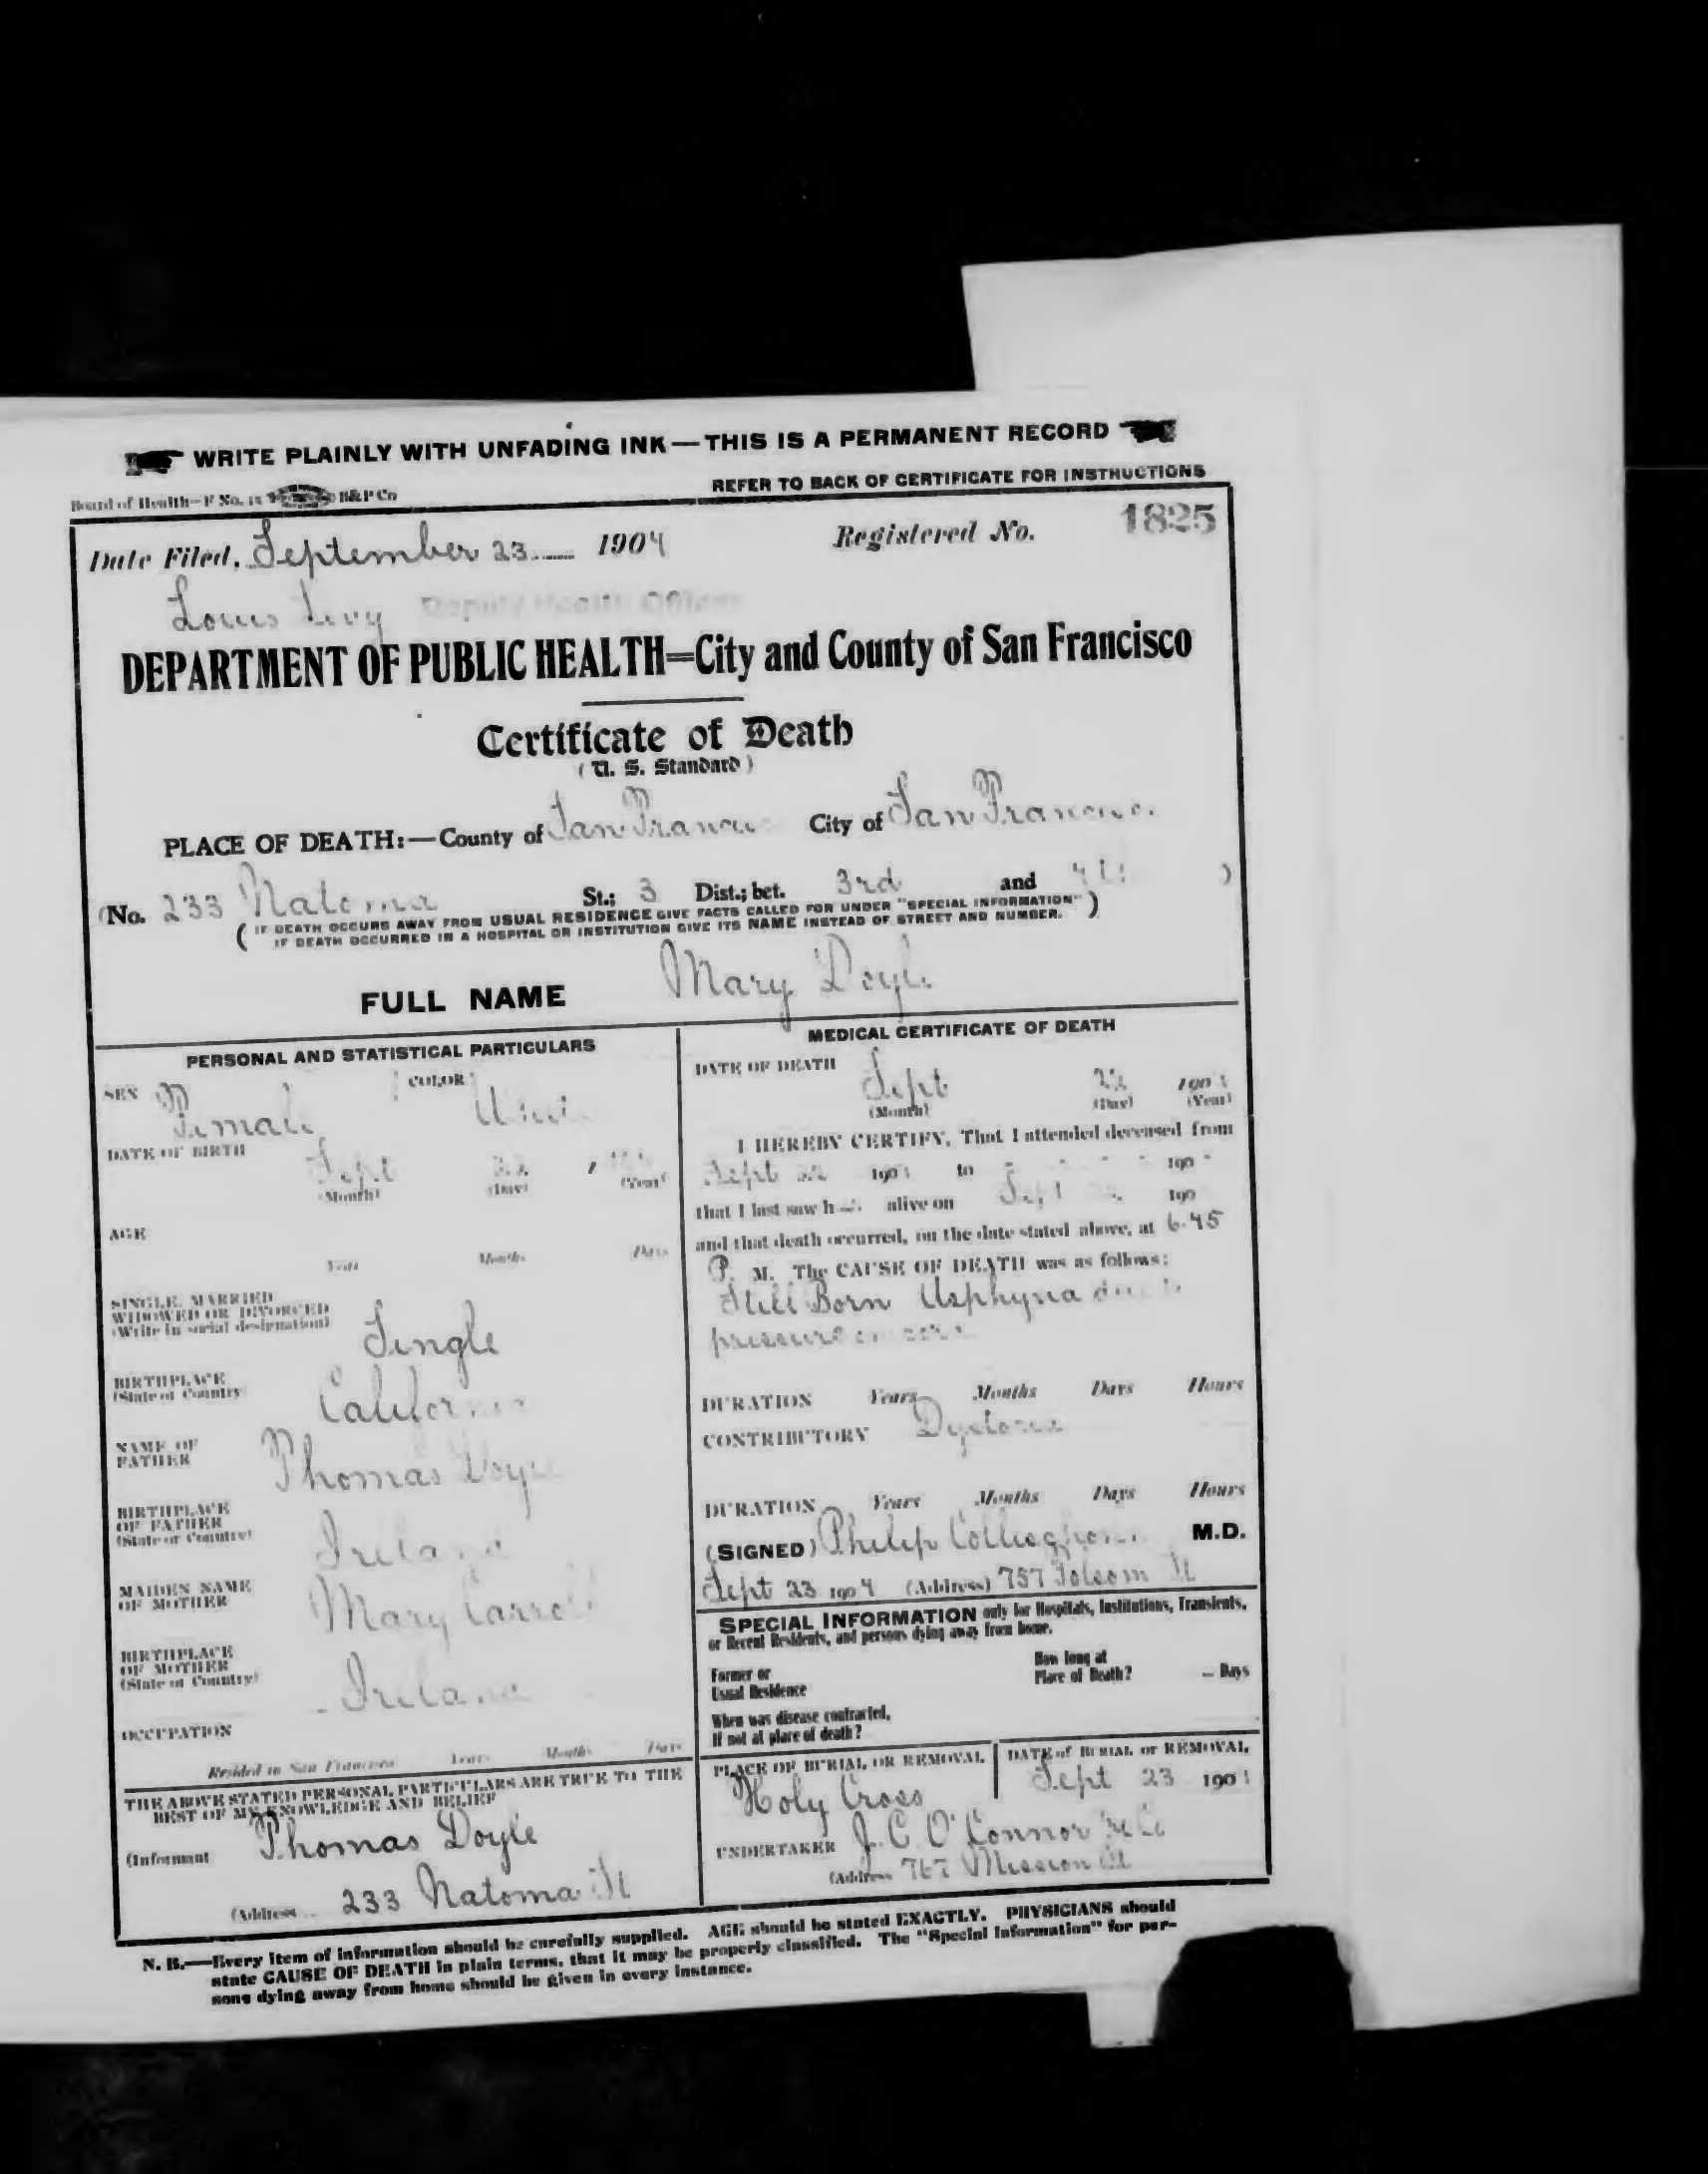 WRITE PLAINLY WITH UNFADING INK — THIS IS A PERMANENT RECORD
Board of Health—F No. H&P Co
REFER TO BACK OF CERTIFICATE FOR INSTRUCTIONS
Date Filed, September 23 1904 Registered No. 1825
Louis Levy Deputy Health Officer
DEPARTMENT OF PUBLIC HEALTH=City and County of San Francisco
Certificate of Death
(U. S. Standard)
PLACE OF DEATH:—County of San Francisco City of San Francisco
(No. 233 Natoma St.; 3 Dist.; bet. 3rd and 4th )
( IF DEATH OCCURS AWAY FROM USUAL RESIDENCE GIVE FACTS CALLED FOR UNDER "SPECIAL INFORMATION" )
IF DEATH OCCURRED IN A HOSPITAL OR INSTITUTION GIVE ITS NAME INSTEAD OF STREET AND NUMBER.
FULL NAME Mary Doyle
PERSONAL AND STATISTICAL PARTICULARS
SEX Female COLOR White
DATE OF BIRTH Sept 22
(Month) (Day) (Year)
AGE
Years Months Days
SINGLE, MARRIED
WIDOWED OR DIVORCED
(Write in social designation) Single
BIRTHPLACE
(State or Country) California
NAME OF
FATHER Thomas Doyle
BIRTHPLACE
OF FATHER
(State or Country) Ireland
MAIDEN NAME
OF MOTHER Mary Carroll
BIRTHPLACE
OF MOTHER
(State or Country) Ireland
OCCUPATION
Resided in San Francisco Years Months Days
THE ABOVE STATED PERSONAL PARTICULARS ARE TRUE TO THE
BEST OF MY KNOWLEDGE AND BELIEF
(Informant Thomas Doyle
(Address 233 Natoma St
MEDICAL CERTIFICATE OF DEATH
DATE OF DEATH
Sept 22 190
(Month) (Day) (Year)
I HEREBY CERTIFY, That I attended deceased from
Sept 22 190 to 190
that I last saw h alive on Sept 190
and that death occurred, on the date stated above, at 6.45
P. M. The CAUSE OF DEATH was as follows:
Still Born Asphyxia due to
pressure on cord
DURATION Years Months Days Hours
CONTRIBUTORY Dystocia
DURATION Years Months Days Hours
(SIGNED) Philip M.D.
Sept 23 1904 (Address) 757 Folsom St
SPECIAL INFORMATION only for Hospitals, Institutions, Transients,
or Recent Residents, and persons dying away from home.
Former or
Usual Residence
How long at
Place of Death? Days
When was disease contracted,
If not at place of death?
PLACE OF BURIAL OR REMOVAL
Holy Cross
DATE of BURIAL or REMOVAL
Sept 23 190
UNDERTAKER J. C. O'Connor & Co
(Address 767 Mission St
N. B.—Every item of information should be carefully supplied. AGE should be stated EXACTLY. PHYSICIANS should
state CAUSE OF DEATH in plain terms, that it may be properly classified. The "Special Information" for per-
sons dying away from home should be given in every instance.